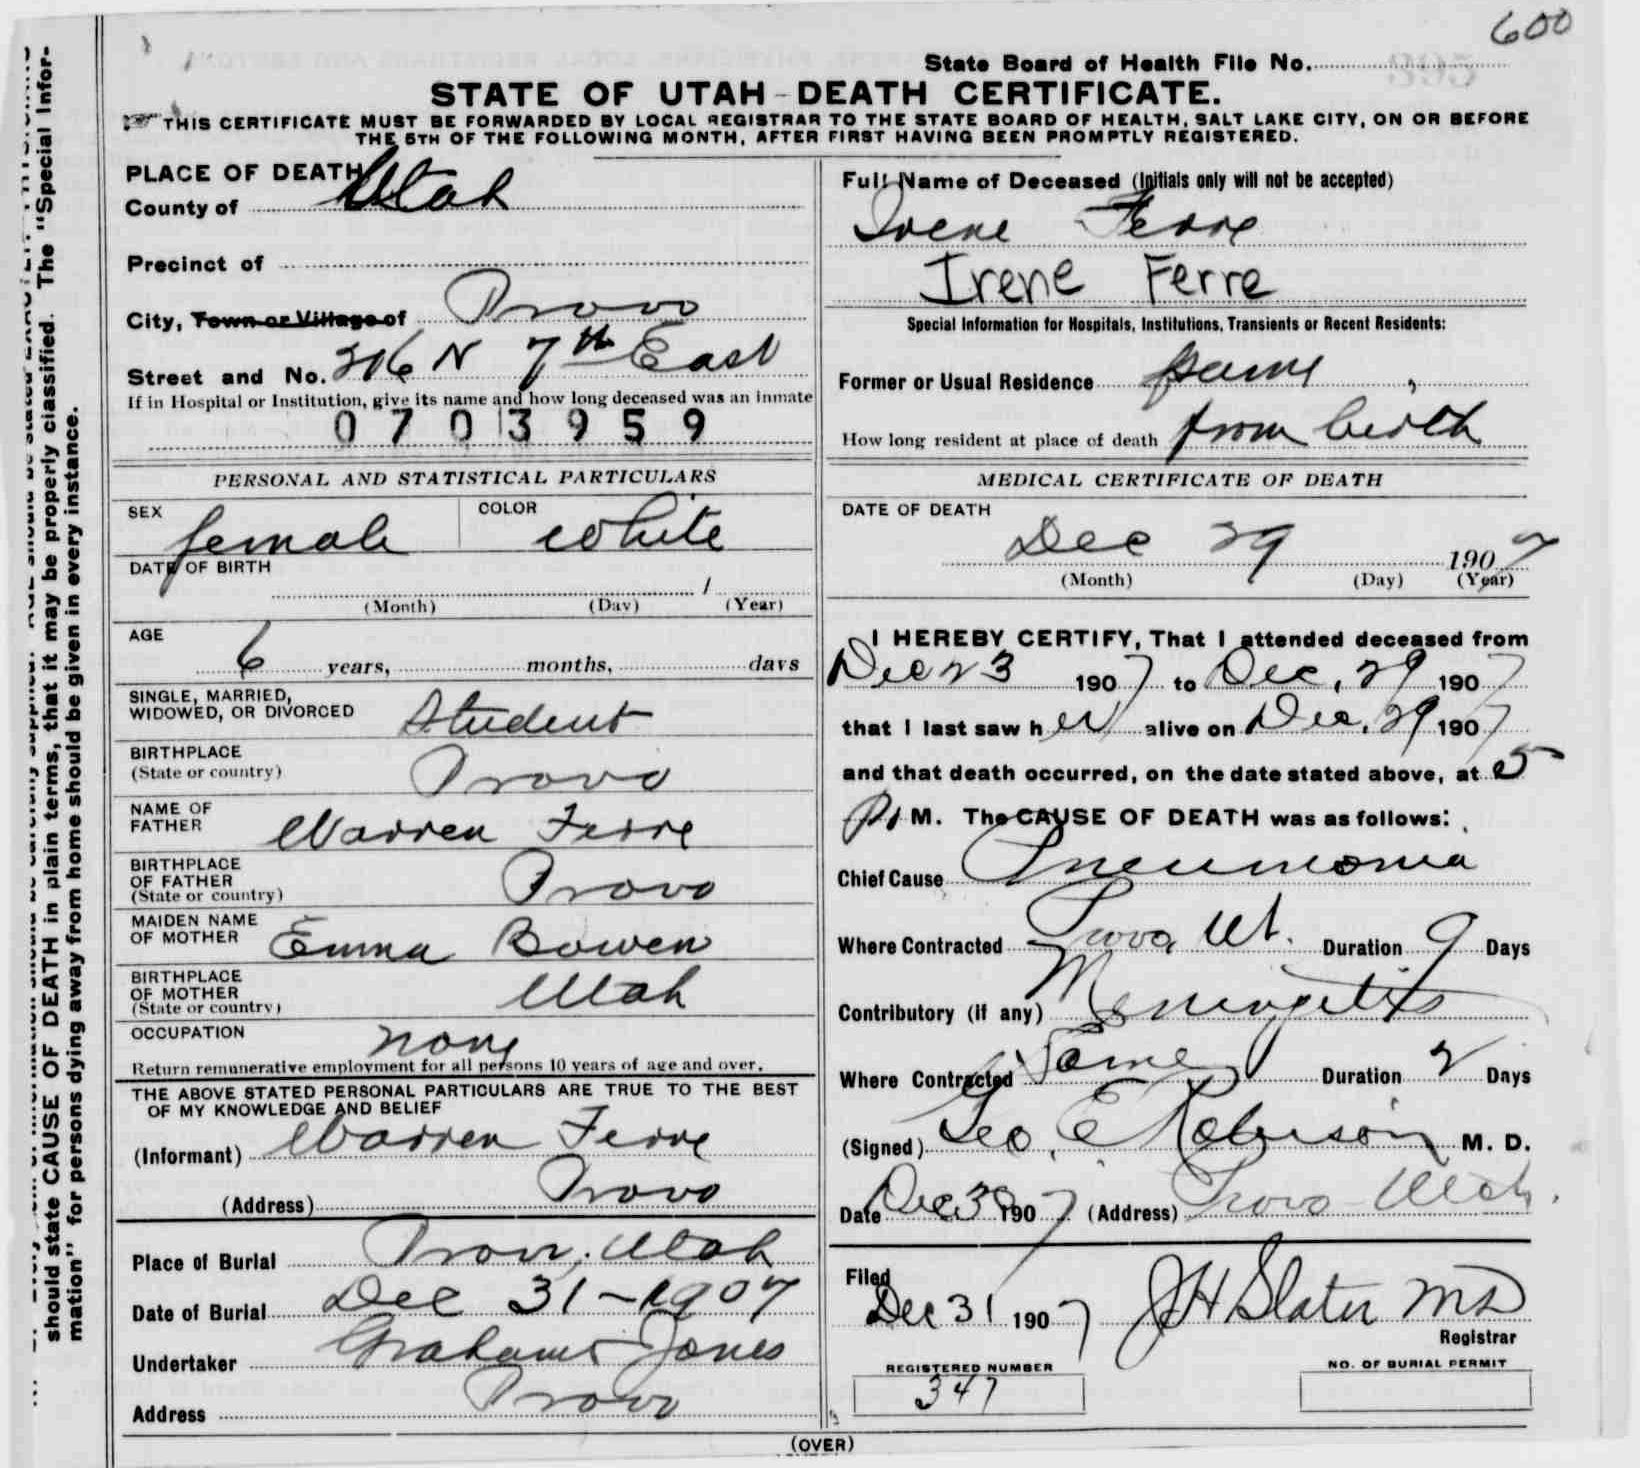 600
State Board of Health File No.
STATE OF UTAH - DEATH CERTIFICATE.
THIS CERTIFICATE MUST BE FORWARDED BY LOCAL REGISTRAR TO THE STATE BOARD OF HEALTH, SALT LAKE CITY, ON OR BEFORE
THE 5TH OF THE FOLLOWING MONTH, AFTER FIRST HAVING BEEN PROMPTLY REGISTERED.
should state CAUSE OF DEATH in plain terms, that it may be properly classified. The "Special Infor-
mation" for persons dying away from home should be given in every instance.
PLACE OF DEATH
County of Utah
Precinct of
City, Town or Village of Provo
Street and No. 206 N 7th East
If in Hospital or Institution, give its name and how long deceased was an inmate
0703959
PERSONAL AND STATISTICAL PARTICULARS
SEX female COLOR White
DATE OF BIRTH
1
(Month) (Day) (Year)
AGE
6 years, months, days
SINGLE, MARRIED,
WIDOWED, OR DIVORCED Student
BIRTHPLACE
(State or country) Provo
NAME OF
FATHER Warren Ferre
BIRTHPLACE
OF FATHER
(State or country) Provo
MAIDEN NAME
OF MOTHER Emma Bowen
BIRTHPLACE
OF MOTHER
(State or country) Utah
OCCUPATION none
Return remunerative employment for all persons 10 years of age and over.
THE ABOVE STATED PERSONAL PARTICULARS ARE TRUE TO THE BEST
OF MY KNOWLEDGE AND BELIEF
(Informant) Warren Ferre
(Address) Provo
Place of Burial Provo, Utah
Date of Burial Dec 31-1907
Undertaker Graham Jones
Address Provo
Full Name of Deceased (Initials only will not be accepted)
Irene Ferre
Irene Ferre
Special Information for Hospitals, Institutions, Transients or Recent Residents:
Former or Usual Residence same
How long resident at place of death from birth
MEDICAL CERTIFICATE OF DEATH
DATE OF DEATH
Dec 29 1907
(Month) (Day) (Year)
I HEREBY CERTIFY, That I attended deceased from
Dec 23 1907 to Dec. 29 1907
that I last saw her alive on Dec. 29 1907
and that death occurred, on the date stated above, at 5
P. M. The CAUSE OF DEATH was as follows:
Chief Cause Pneumonia
Where Contracted Provo Ut. Duration 9 Days
Contributory (if any) Meningitis
Where Contracted Same Duration 2 Days
(Signed) Geo. E Roberson M. D.
Date Dec 30 1907 (Address) Provo Utah.
Filed
Dec 31 1907 J H Slater MD
Registrar
REGISTERED NUMBER
347
NO. OF BURIAL PERMIT
(OVER)